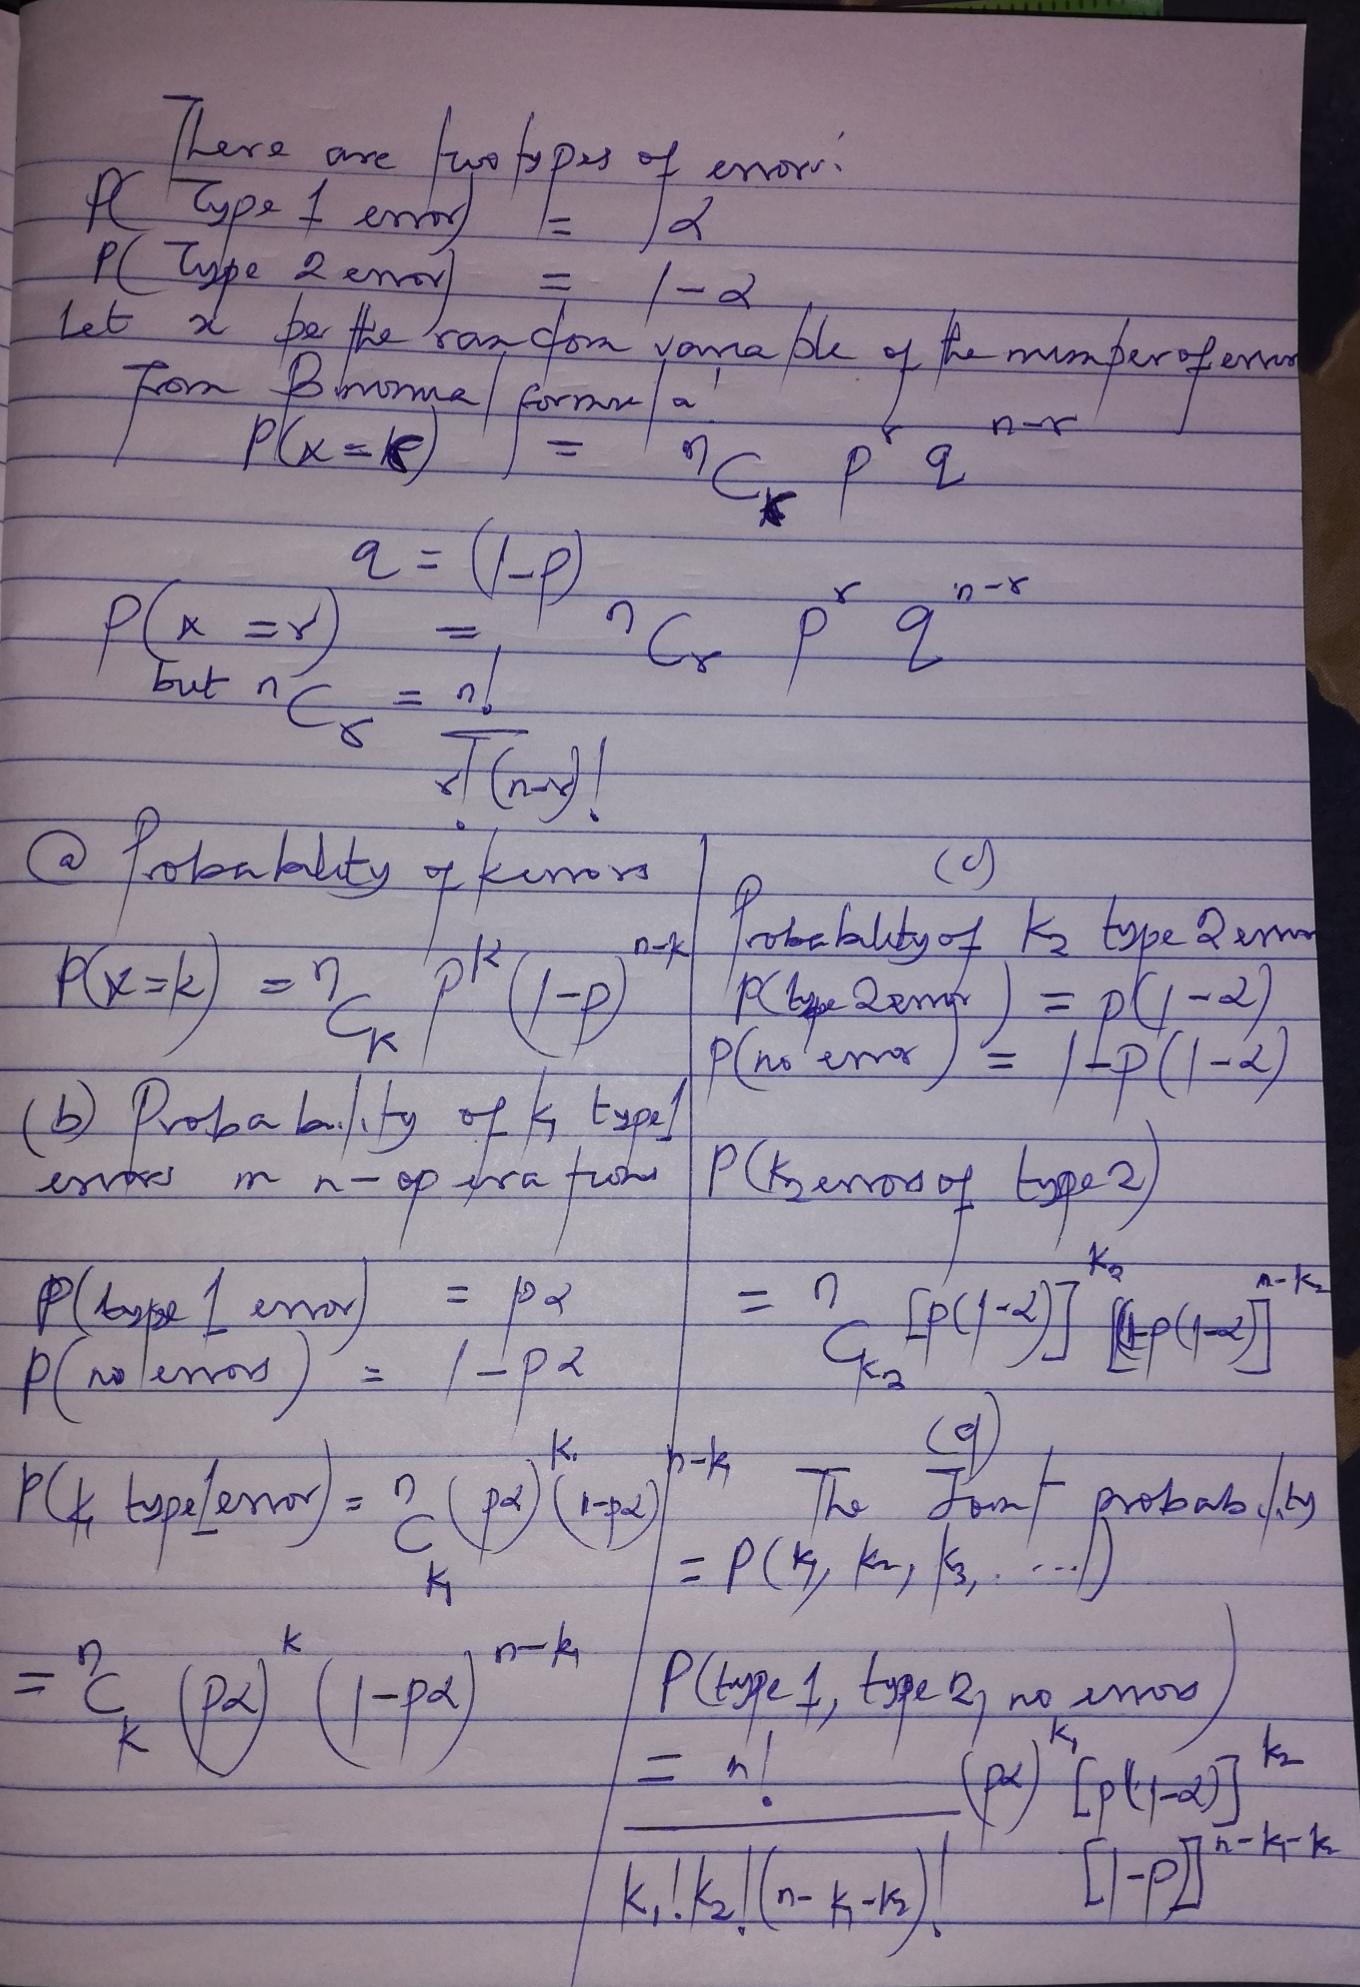 There are two types of error:
P( Type 1 error) = α
P( Type 2 error) = 1-α
Let x be the random variable of the number of error
From Binomial formula
P(x=k) = nCk p^r q^n-r
q = (1-p)
P(x=r) = nCr p^r q^n-r
but nCr = n!
r!(n-r)!
(a) Probability of k errors
P(x=k) = nCk p^k (1-p)^n-k
(b) Probability of k1 type 1
errors in n-operations
P(type 1 error) = pα
P(no errors) = 1-pα
P(k1 type 1 error) = nCk1 (pα)^k1 (1-pα)^n-k1
= nCk (pα)^k (1-pα)^n-k1
(c)
Probability of k2 type 2 error
P(type 2 error) = p(1-α)
P(no error) = 1-p(1-α)
P(k2 errors of type 2)
= nCk2 [p(1-α)]^k2 [1-p(1-α)]^n-k2
(d)
The Joint probability
= P(k1, k2, k3, .....)
P(type 1, type 2, no errors)
= n! (pα)^k1 [p(1-α)]^k2
k1! k2! (n-k1-k2)! [1-p]^n-k1-k2